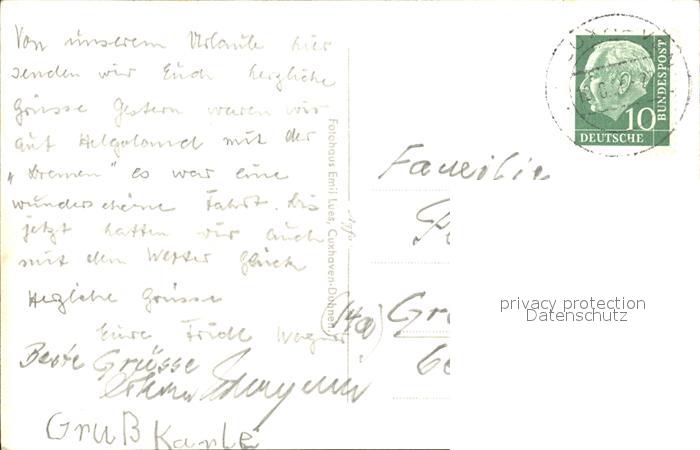 Von unserem Urlaub hier
senden wir Euch herzliche
Grüsse Gestern waren wir
auf Helgoland mit der
„Bremen" es war eine
wunderschöne Fahrt. Bis
jetzt hatten wir auch
mit dem Wetter Glück
Herzliche Grüsse
Eure Friedl Wagner
Beste Grüsse
Gruß
Fotohaus Emil Lues, Cuxhaven-Duhnen
Familie
(14a)
10
DEUTSCHE
BUNDESPOST
privacy protection
Datenschutz